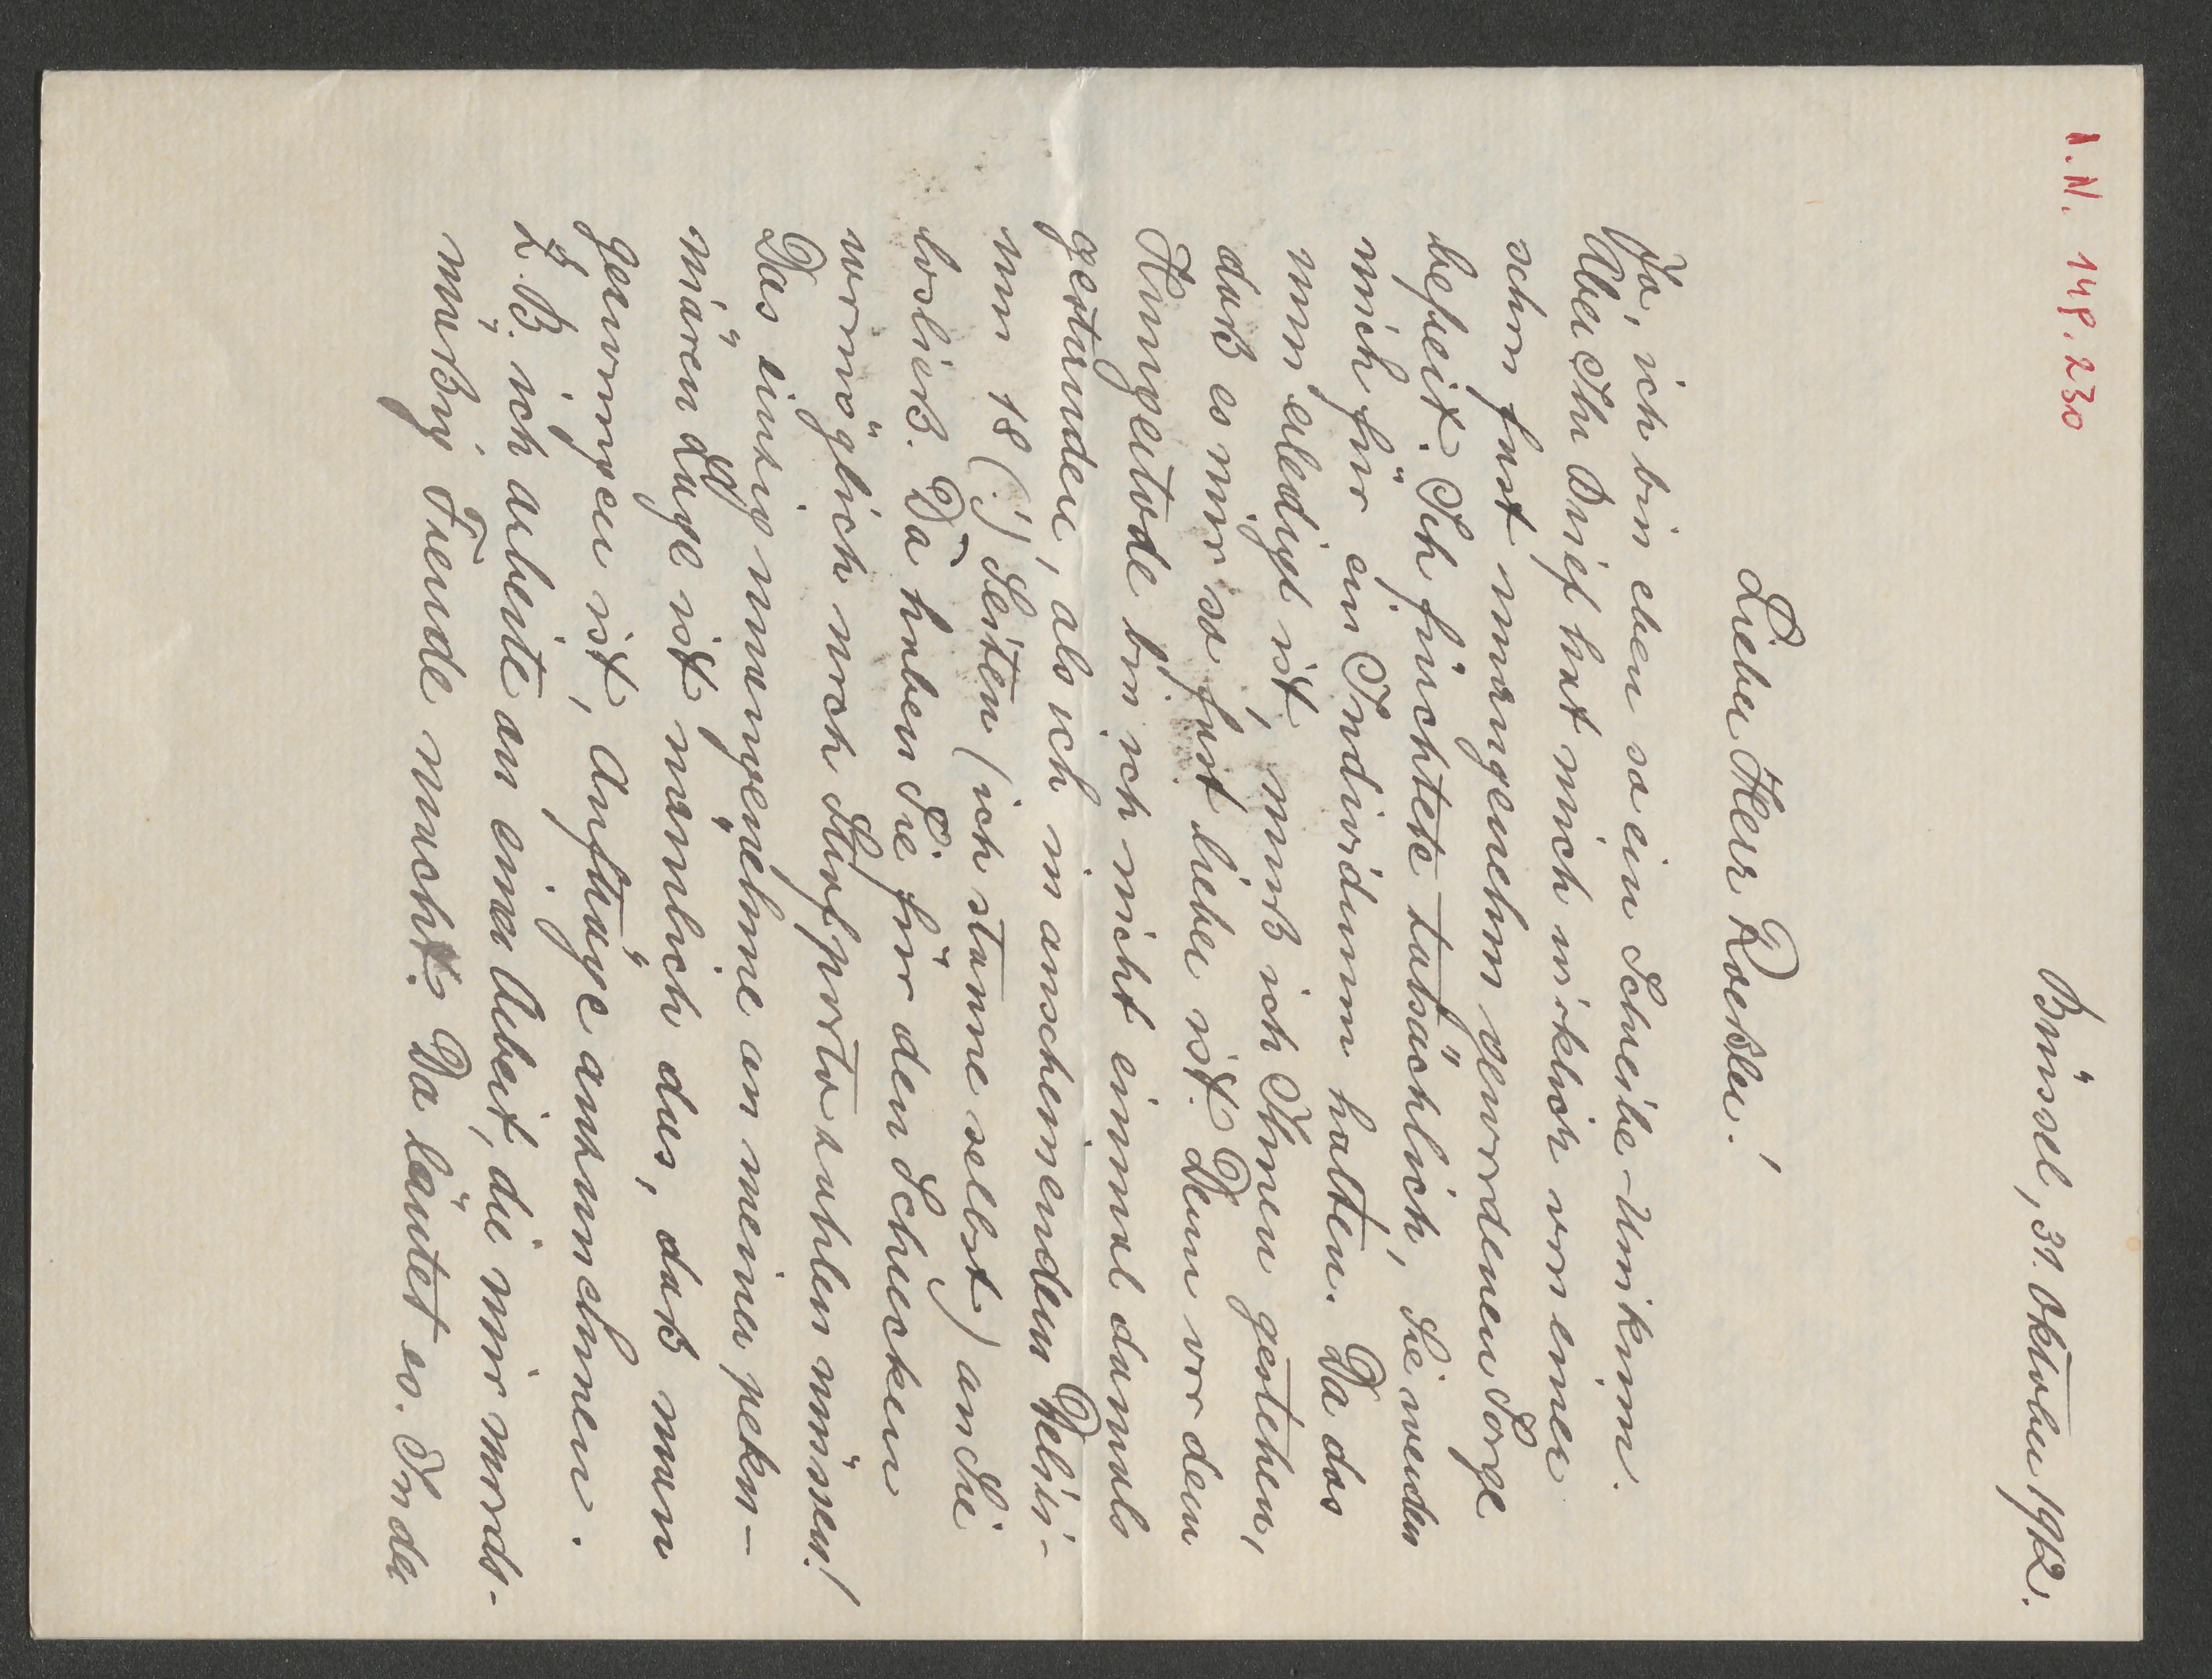 I.N. 149.230
Brüssel, 31. Oktober 1912.
Lieber Herr Roessler!
Ja, ich bin eben so ein Schreibe-Unikum.
Aber Ihr Brief hat mich wirklich von einer
schon fast unangenehm gewordenen Sorge
befreit. Ich fürchtete tatsächlich, Sie werden
mich für ein Individuum halten. Da das
nun erledigt ist, muß ich Ihnen gestehen,
daß es mir so fast lieber ist. Denn vor dem
Hungertode bin ich nicht einmal damals
gestanden, als ich in anscheinendem Deliri-
um 18 (!) Seiten (ich staune selbst) an Sie
losließ. Da haben Sie für den Schrecken
womöglich noch Strafporto zahlen müssen!
Das einzig unangenehme an meiner peku-
niären Lage ist nämlich das, daß man
gezwungen ist, Aufträge anzunehmen.
Z.B. ich arbeite an einer Arbeit, die mir mords-
mäßig Freude macht. Da läutet es. In der